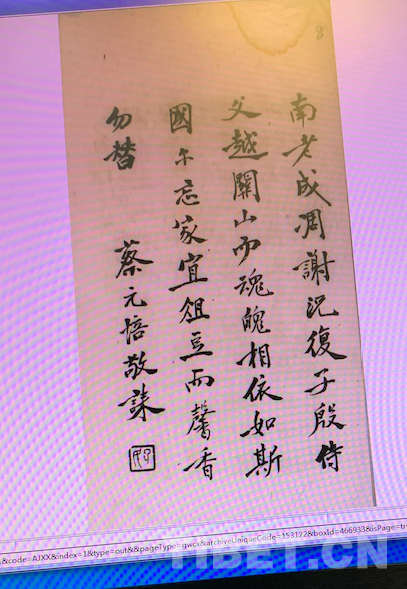 8
南老成凋謝況復子殷侍
父越關山而魂魄相依如斯
國尒忘家宜俎豆而馨香
勿替 蔡元培敬誄
&code=AJXX&index=1&type=out&&pageType=gwcx&archiveUniqueCode=153122&boxId=466933&isPage=tru
TIBET.CN